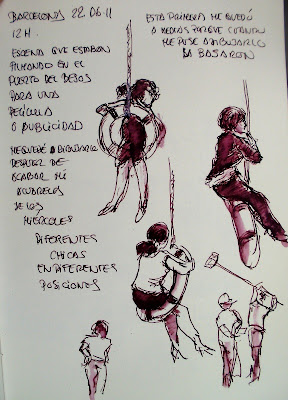 BARCELONA 22.06.11
12H.
ESCENA QUE ESTABAN
FILMANDO EN EL
PUERTO DEL
PARA UNA
PELÍCULA
O PUBLICIDAD
ME QUEDÉ A DIBUJARLO
DESPUES DE
ACABAR MI
DE LOS
MIERCOLES
DIFERENTES
CHICAS
EN DIFERENTES
POSICIONES
ESTA PRIMERA ME QUEDÓ
A MEDIAS PORQUE CUANDO
ME PUSE A DIBUJARLA
LA BAJARON